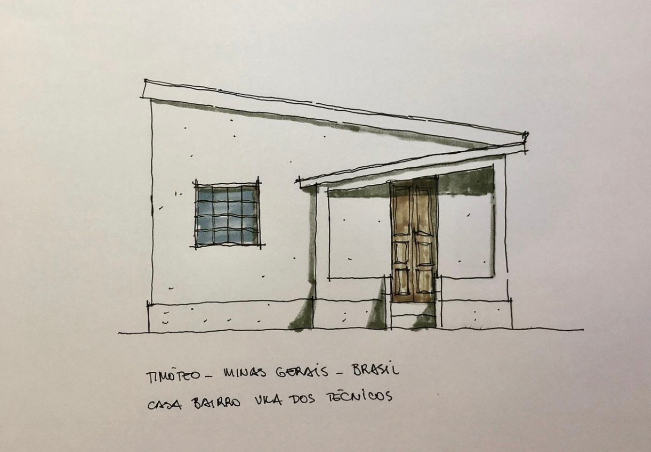 TIMÓTEO - MINAS GERAIS - BRASIL
CASA BAIRRO VILA DOS TÉCNICOS